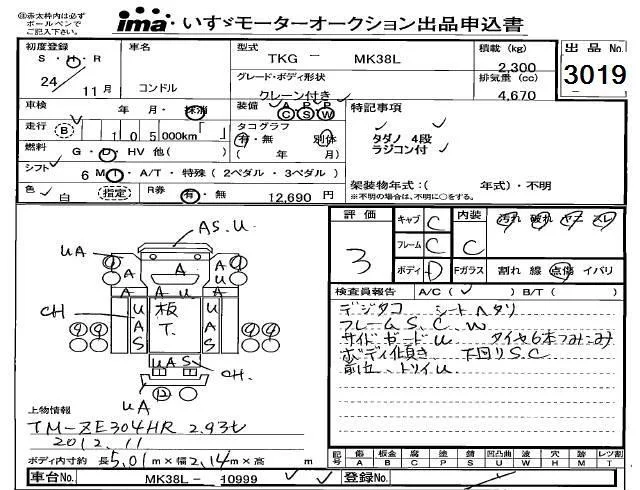 ㊟赤太枠内は必ず
ボールペンで
ご記入下さい。
ima いすゞモーターオークション出品申込書
初度登録
S・H・R
24 11月
車名
コンドル
型式
TKG － MK38L
グレード・ボディ形状
クレーン付き
積載 (kg)
2,300
排気量 (cc)
4,670
出品 No.
3019
車検 年・月・抹消
装備 A P P
C S W
走行 B 105000km
タコグラフ
有・無 別体
( 年 月)
燃料 G・D・HV 他( )
シフト 6 M・A/T・特殊 (2ペダル・3ペダル)
色 白 指定
R券 有・無 12,690 円
特記事項
タダノ 4段
ラジコン付
架装物年式:( 年式)・不明
※不明の場合は、不明に○をする。
AS.U
UA
A
A
U
A
A
A
U
A
CH
U
A
S
板
T.
U
A
S
UAS
CH.
UA
④
④
⑫
上物情報
TM-ZE304HR 2.93t
2012.11
ボディ内寸約 長5.01m×幅2.14m×高 m
評価
3
キャブ C
フレーム C
ボディ D
内装
C
汚れ 破れ ヤケ スレ
Fガラス 割れ 線 点傷 イバリ
検査員報告 A/C( ✓ ) B/T( )
デジタコ シートヘタリ
フレームS.C.W
サイドガードU タイヤ6本3ミ~5ミ
ボディ傾き 下回りS.C
記号 傷 板金 腐 塗 錆 凹凸曲 波 穴 跡 レツ割
A B C P S U W H M T
車台No. MK38L－ 10999
登録No.